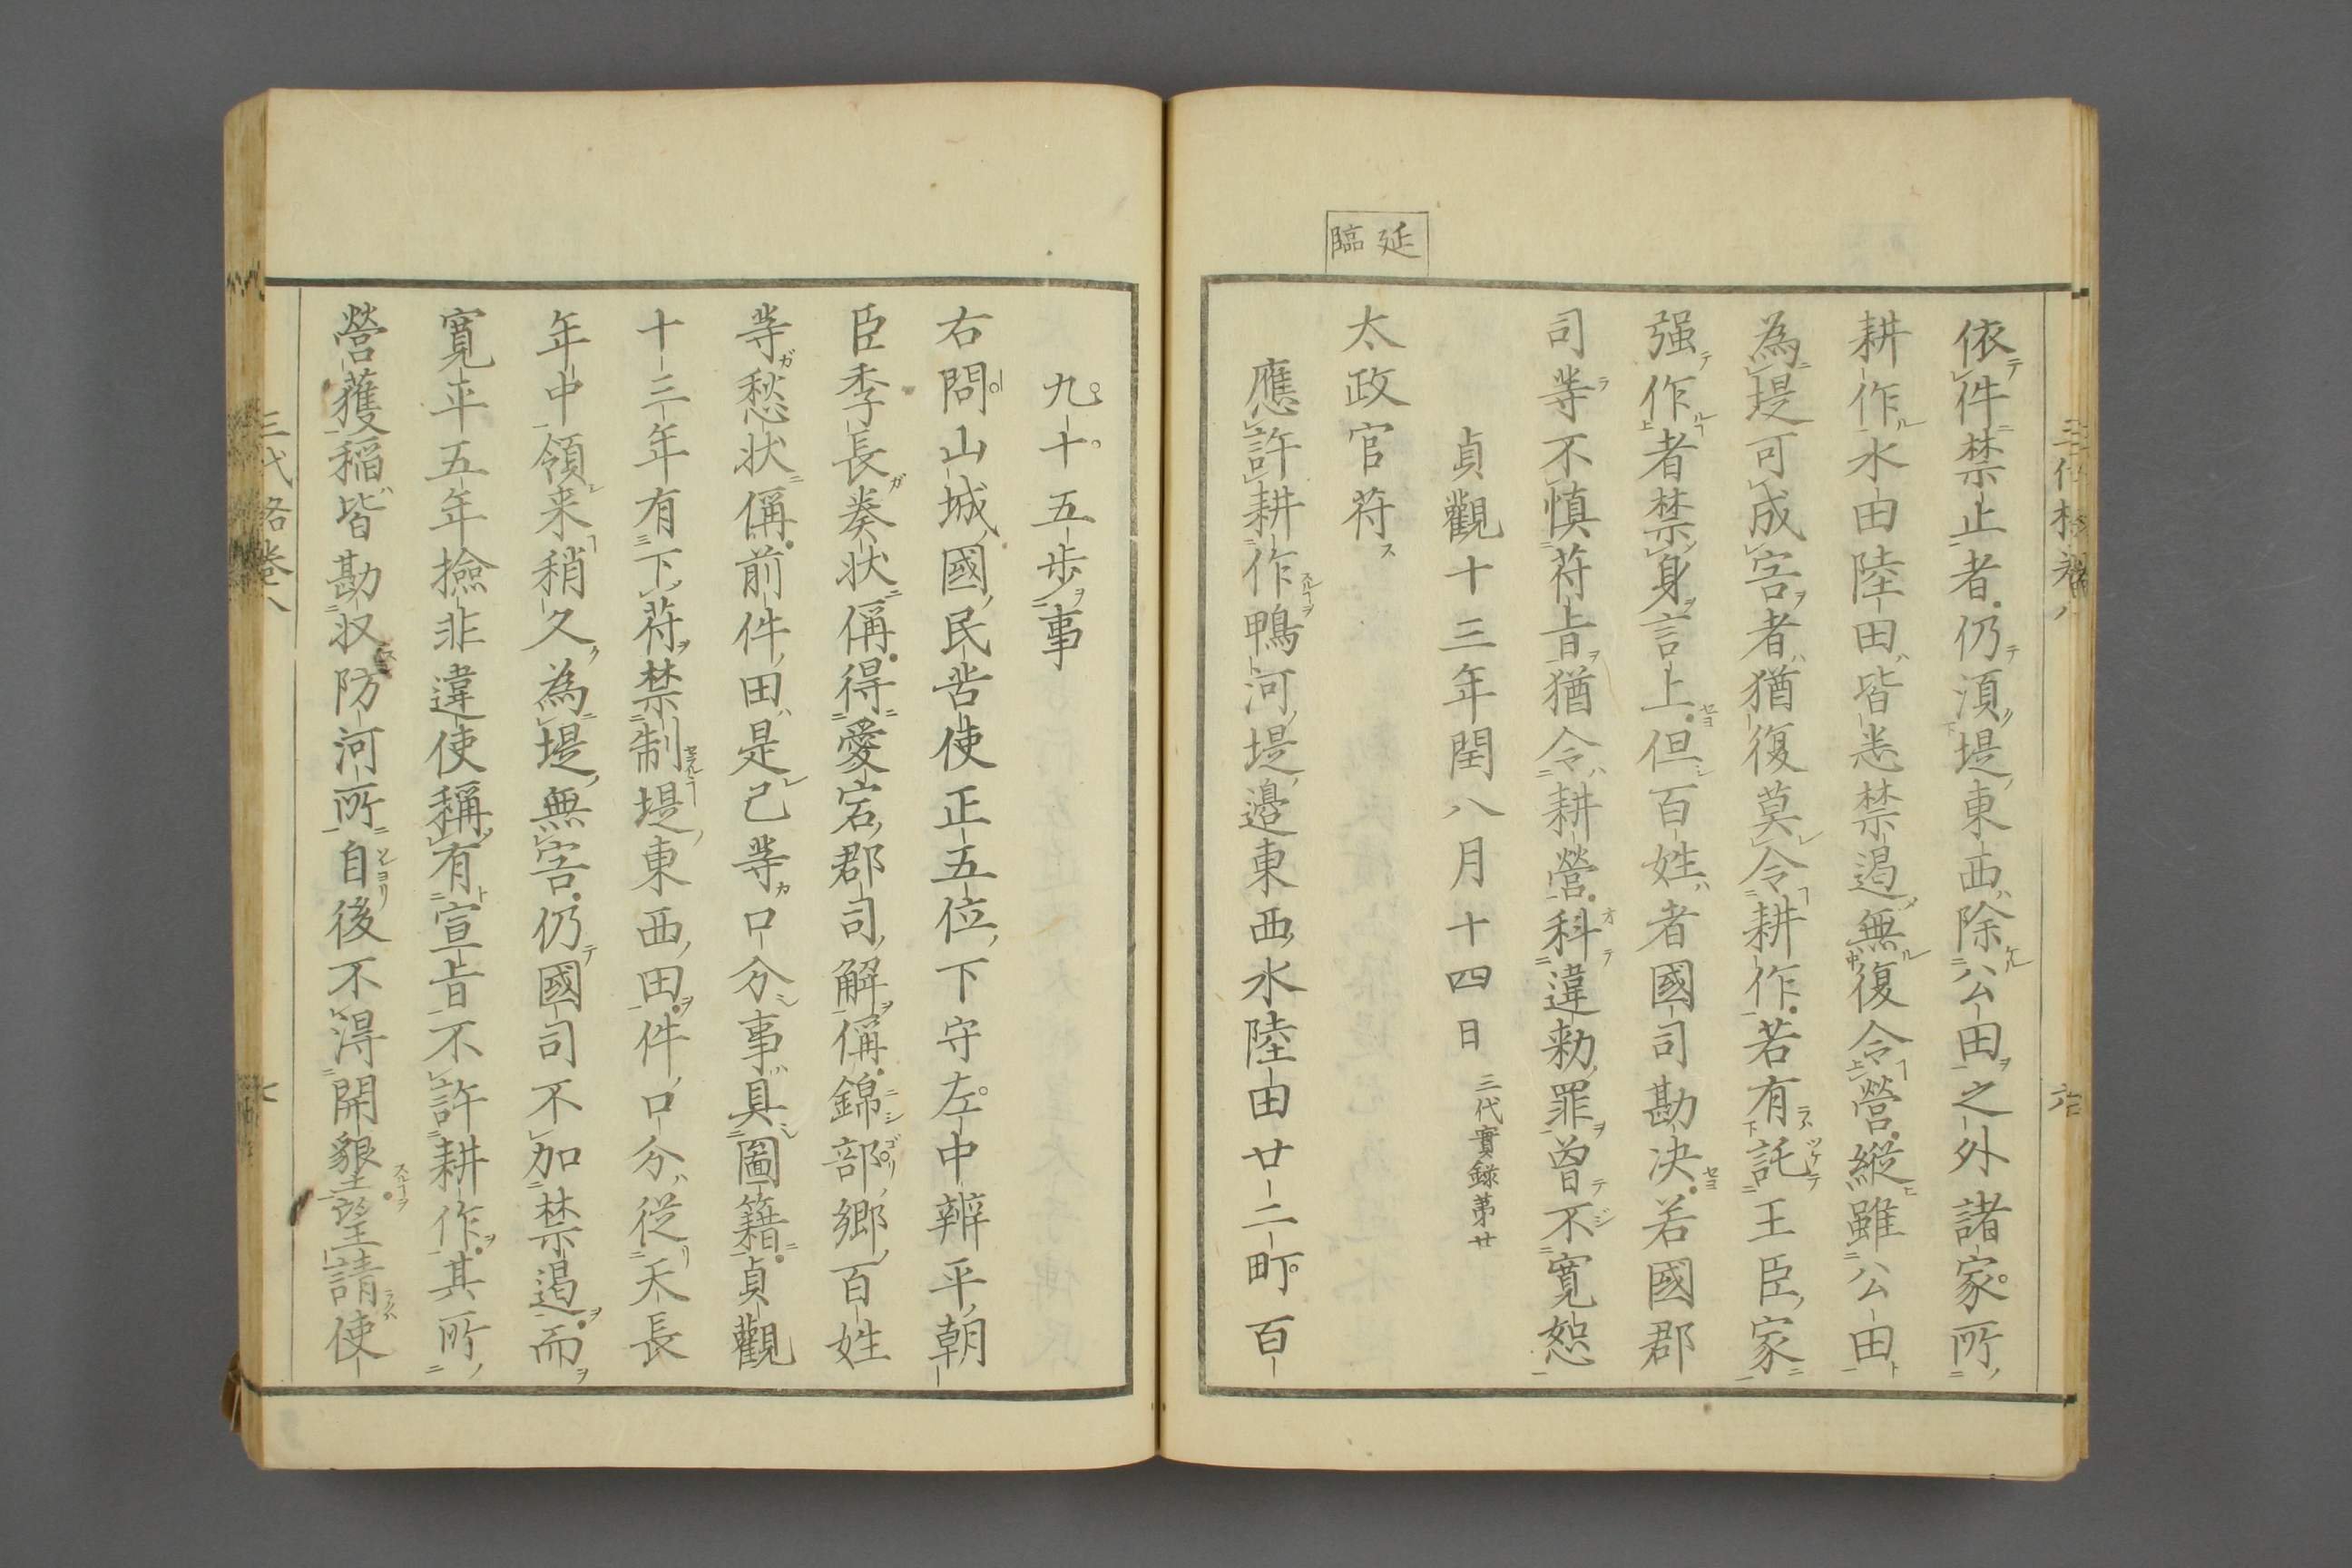 延臨
依件禁止者仍須堤東西除公田之外諸家所
耕作水田陸田皆悉禁遏無復令營縱雖公田
為堤可成害者猶復莫令耕作若有託王臣家
强作者禁身言上但百姓者國司勘决若國郡
司等不慎符旨猶令耕營科違勅罪曾不寬恕
貞觀十三年閏八月十四日 三代實錄第廿
太政官符
應許耕作鴨河堤邊東西水陸田廿二町百
九十五步事
右問山城國民苦使正五位下守左中辨平朝
臣季長奏状偁得愛宕郡司解偁錦部鄉百姓
等愁状偁前件田是己等口分事具圖籍貞觀
十三年有下符禁制堤東西田件口分從天長
年中領来稍久為堤無害仍國司不加禁遏而
寬平五年撿非違使稱有宣旨不許耕作其所
營獲稲皆勘収防河所自後不得開墾望請使
三代格卷八
七